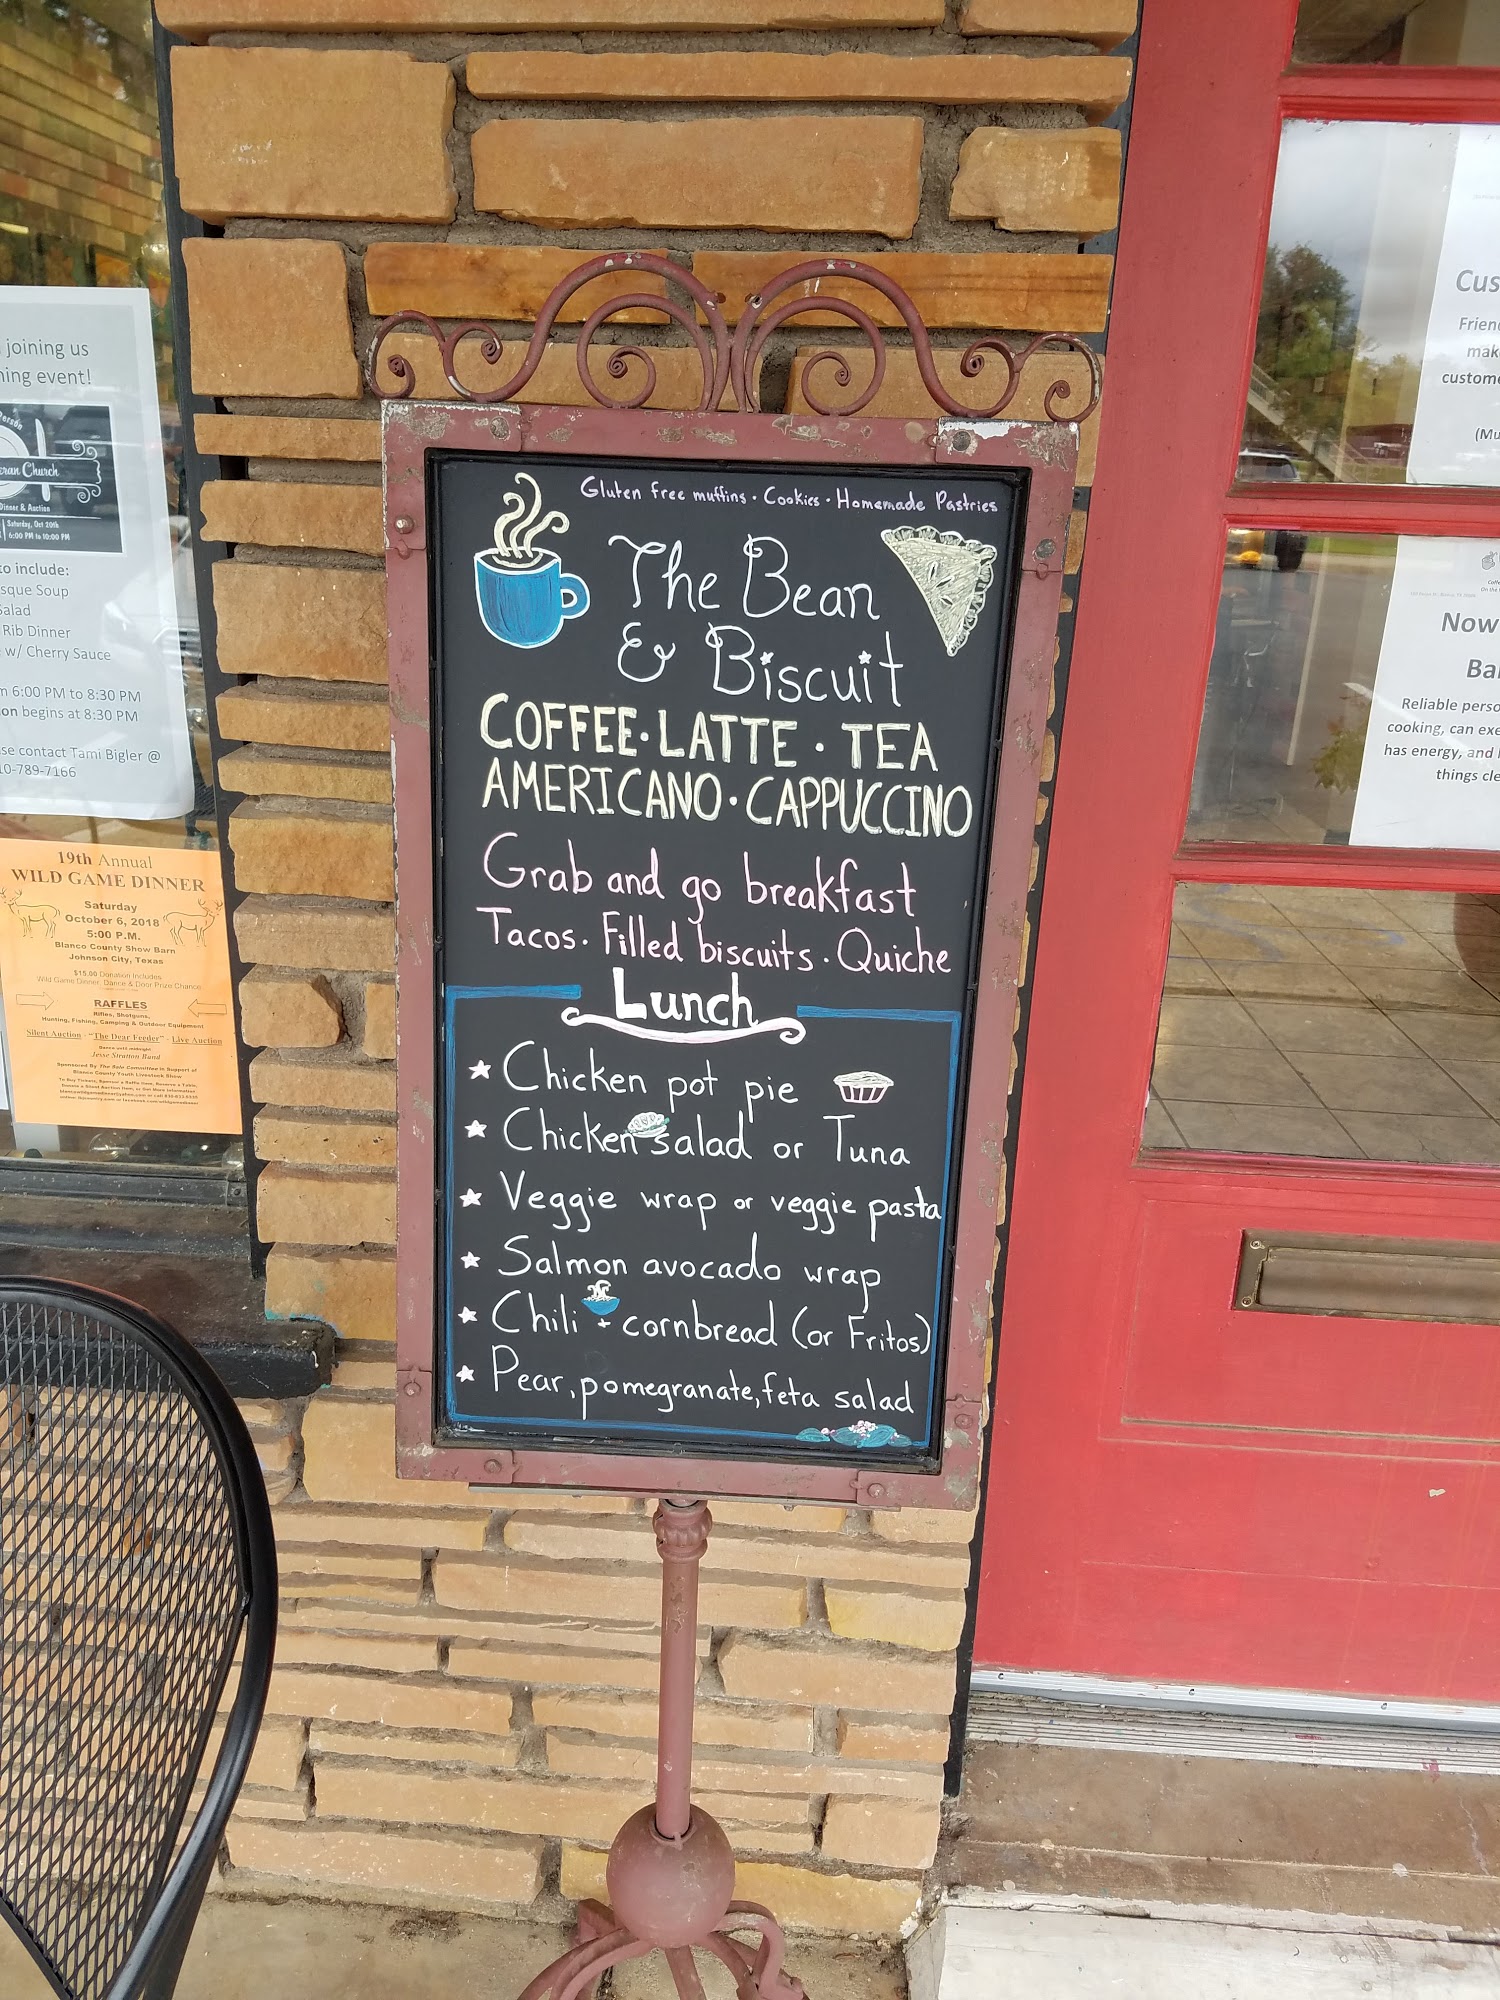 Gluten free muffins · Cookies · Homemade Pastries
The Bean
& Biscuit
COFFEE · LATTE · TEA
AMERICANO · CAPPUCCINO
Grab and go breakfast
Tacos · Filled biscuits · Quiche
Lunch
★ Chicken pot pie
★ Chicken salad or Tuna
★ Veggie wrap or veggie pasta
★ Salmon avocado wrap
★ Chili + cornbread (or Fritos)
★ Pear, pomegranate, feta salad
joining us
ning event!
Person
eran Church
Dinner & Auction
Saturday, Oct 20th
6:00 PM to 10:00 PM
to include:
sque Soup
Salad
Rib Dinner
w/ Cherry Sauce
m 6:00 PM to 8:30 PM
on begins at 8:30 PM
se contact Tami Bigler @
10-789-7166
19th Annual
WILD GAME DINNER
Saturday
October 6, 2018
5:00 P.M.
Blanco County Show Barn
Johnson City, Texas
$15.00 Donation Includes
Wild Game Dinner, Dance & Door Prize Chance
RAFFLES
Rifles, Shotguns,
Hunting, Fishing, Camping & Outdoor Equipment
Silent Auction - "The Dear Feeder" - Live Auction
Dance until midnight
Jesse Stratton Band
Sponsored By The Sale Committee in Support of
Blanco County Youth Livestock Show
Cus
Frien
mak
custome
(Mu
Now
Ba
Reliable perso
cooking, can exe
has energy, and
things cle